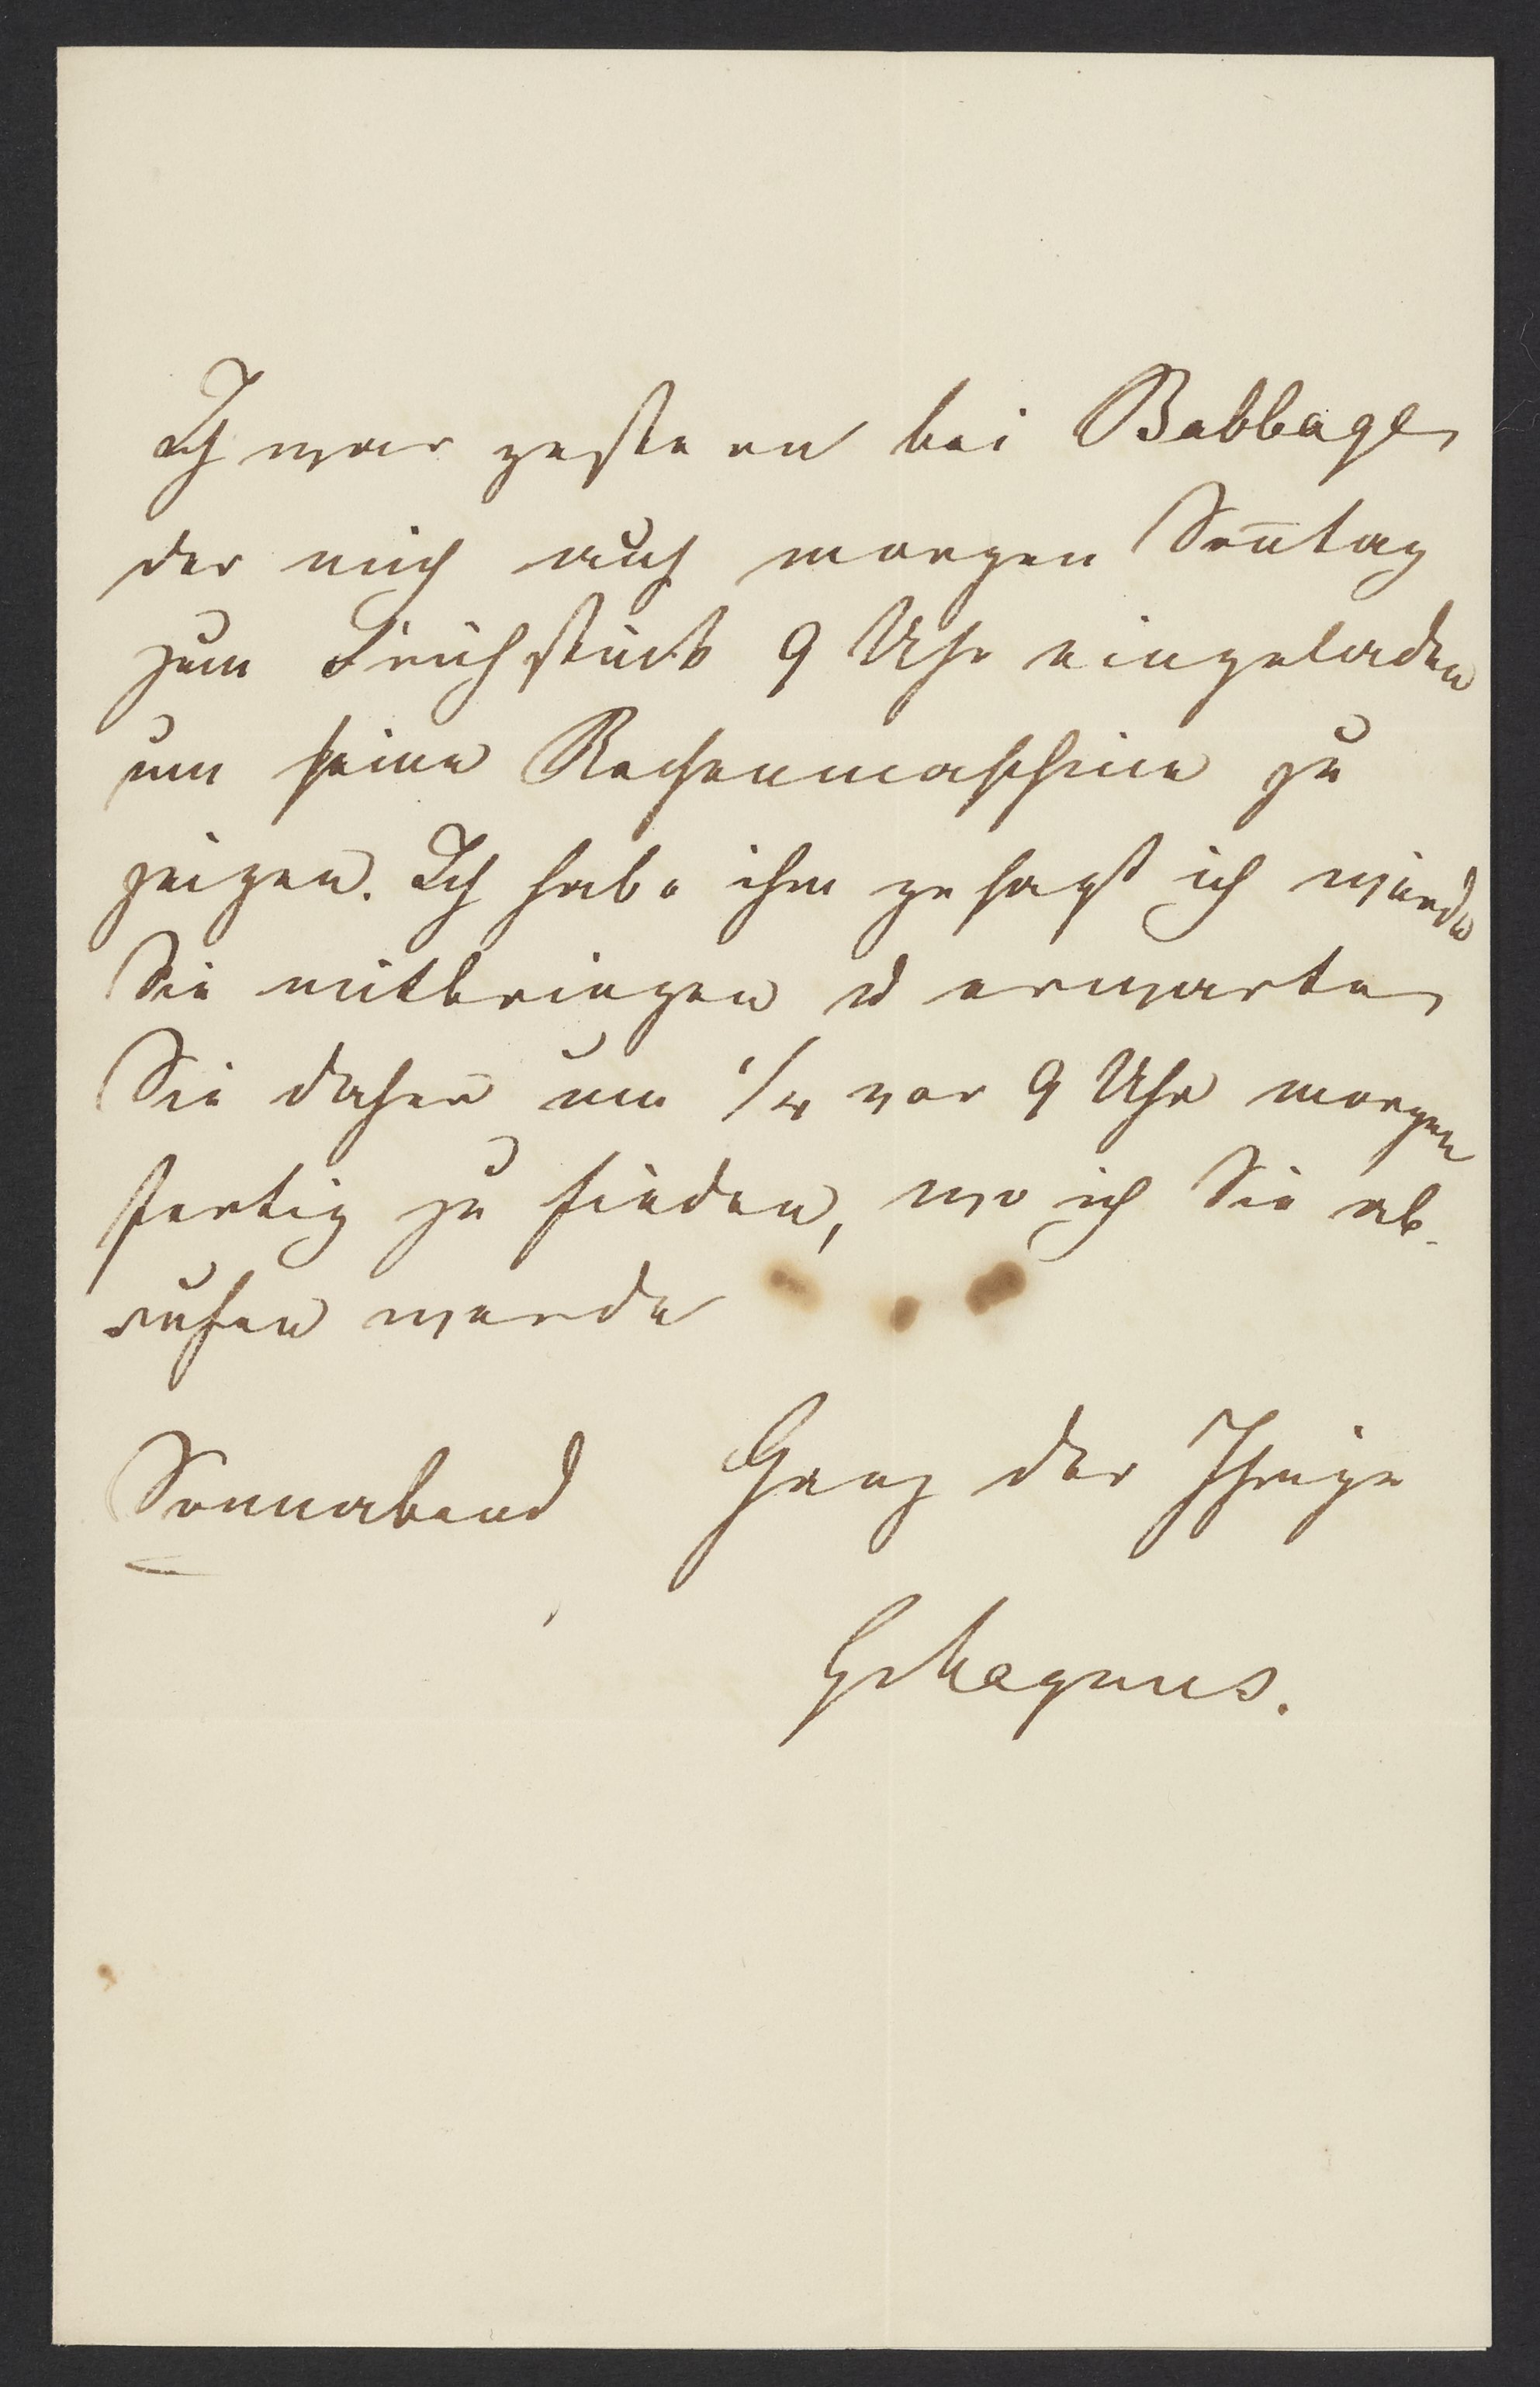 Ich war gestern bei Babbage,
der mich auf morgen Son̄tag
zum Frühstück 9 Uhr eingeladen
um seine Rechenmaschine zu
zeigen. Ich habe ihm gesagt ich würde
Sie mitbringen u erwarte,
Sie daher um 1/4 vor 9 Uhr morgen
fertig zu finden, wo ich Sie ab-
rufen werde
Sonnabend Ganz der Ihrige
GMagnus.